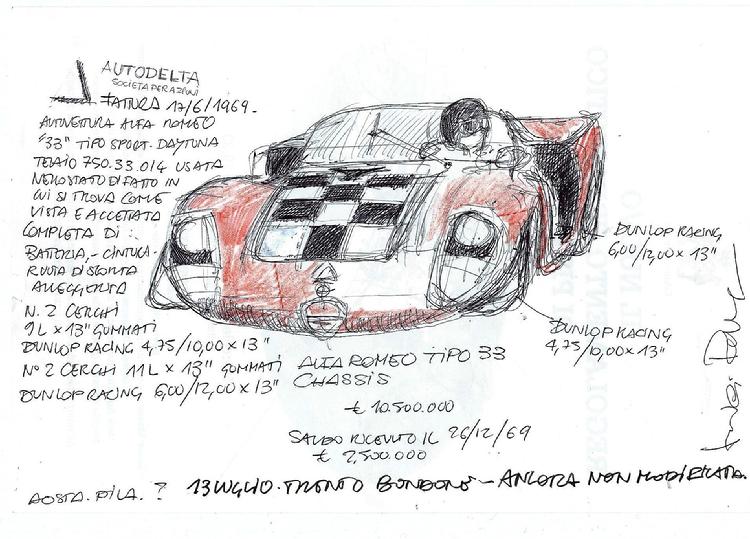 AUTODELTA
SOCIETA PER AZIONI
FATTURA 17/6/1969-
AUTOVETTURA ALFA ROMEO
"33" TIPO SPORT DAYTUNA
TELAIO 750.33.014 USATA
NELLO STATO DI FATTO IN
CUI SI TROVA COME
VISTA E ACCETTATA
COMPLETA DI:
BATTERIA,- CINTURA-
RUOTA DI SCORTA
ALLEGGERITA
N. 2 CERCHI
9L x 13" GOMMATI
DUNLOP RACING 4,75/10,00 x 13"
N° 2 CERCHI 11L x 13" GOMMATI
DUNLOP RACING 6,00/12,00 x 13"
DUNLOP RACING
6,00/12,00 x 13"
DUNLOP RACING
4,75/10,00 x 13"
ALFA ROMEO TIPO 33
CHASSIS
£ 10.500.000
SALDO RICEVUTO IL 26/12/69
£ 2.500.000
AOSTA. PILA. ? 13 LUGLIO. TRENTO BONDONE - ANCORA NON MODIFICATA.